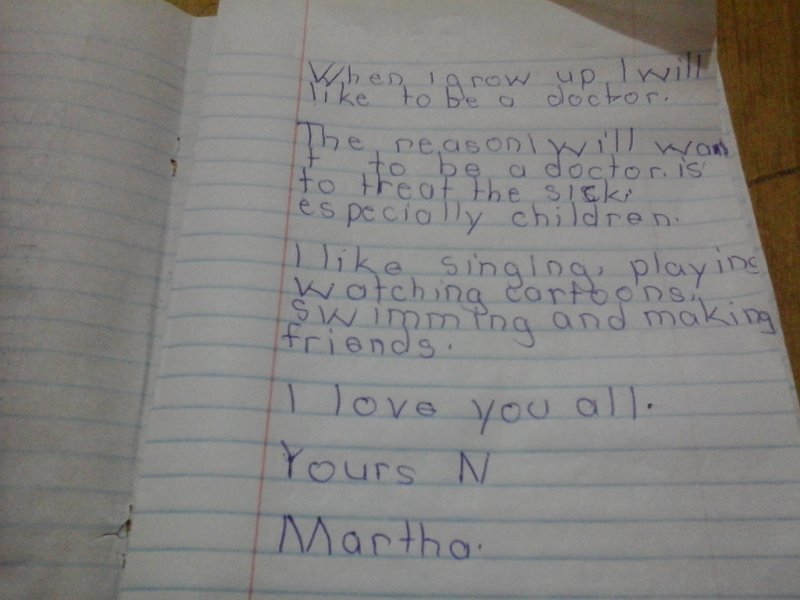 When I grow up I will
like to be a doctor.
The reason I will wan
t to be a doctor. is
to treat the sick.
especially children.
I like singing, playing
watching cartoons,
swimming and making
friends.
I love you all.
Yours N
Martha.